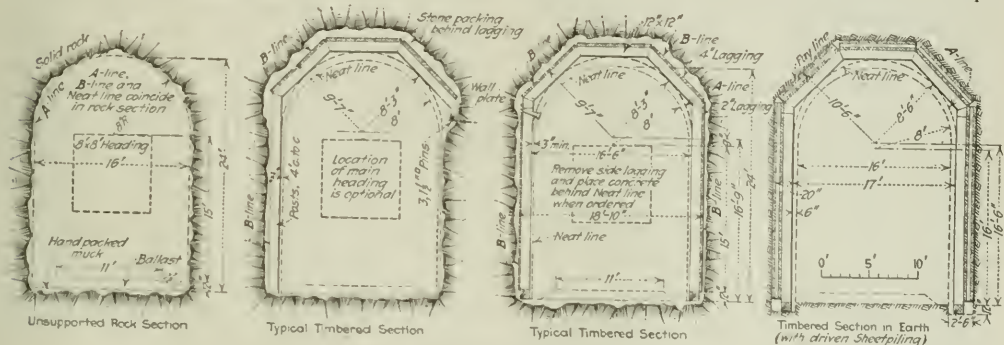 Solid rock
A-line,
B-line and
Neat line coincide
in rock section
A line
8'R
8'x8' Heading
16'
24'
15'
Hand packed
muck
Ballast
11'
Unsupported Rock Section
Stone packing
behind lagging
B-line
Neat line
9'-7"
8'-3"
8'
Wall
plate
Location
of main
heading
is optional
Posts, 4' c. to c.
B-line
Typical Timbered Section
12"x12"
B-line
4" Lagging
B-line
A-line
2" Lagging
Neat line
9'-7"
8'-3"
8'
3" min.
16'-6"
Remove side lagging
and place concrete
behind Neat line
when ordered
18'-10"
B-line
Neat line
B-line
11'
15'
16'-9"
24'
Typical Timbered Section
Any line
A-line
Neat line
10'-6"
8'-6"
8'
16'
17'
20"
6"
0' 5' 10'
16'-6"
2'-6"
Timbered Section in Earth
(with driven Sheetpiling)